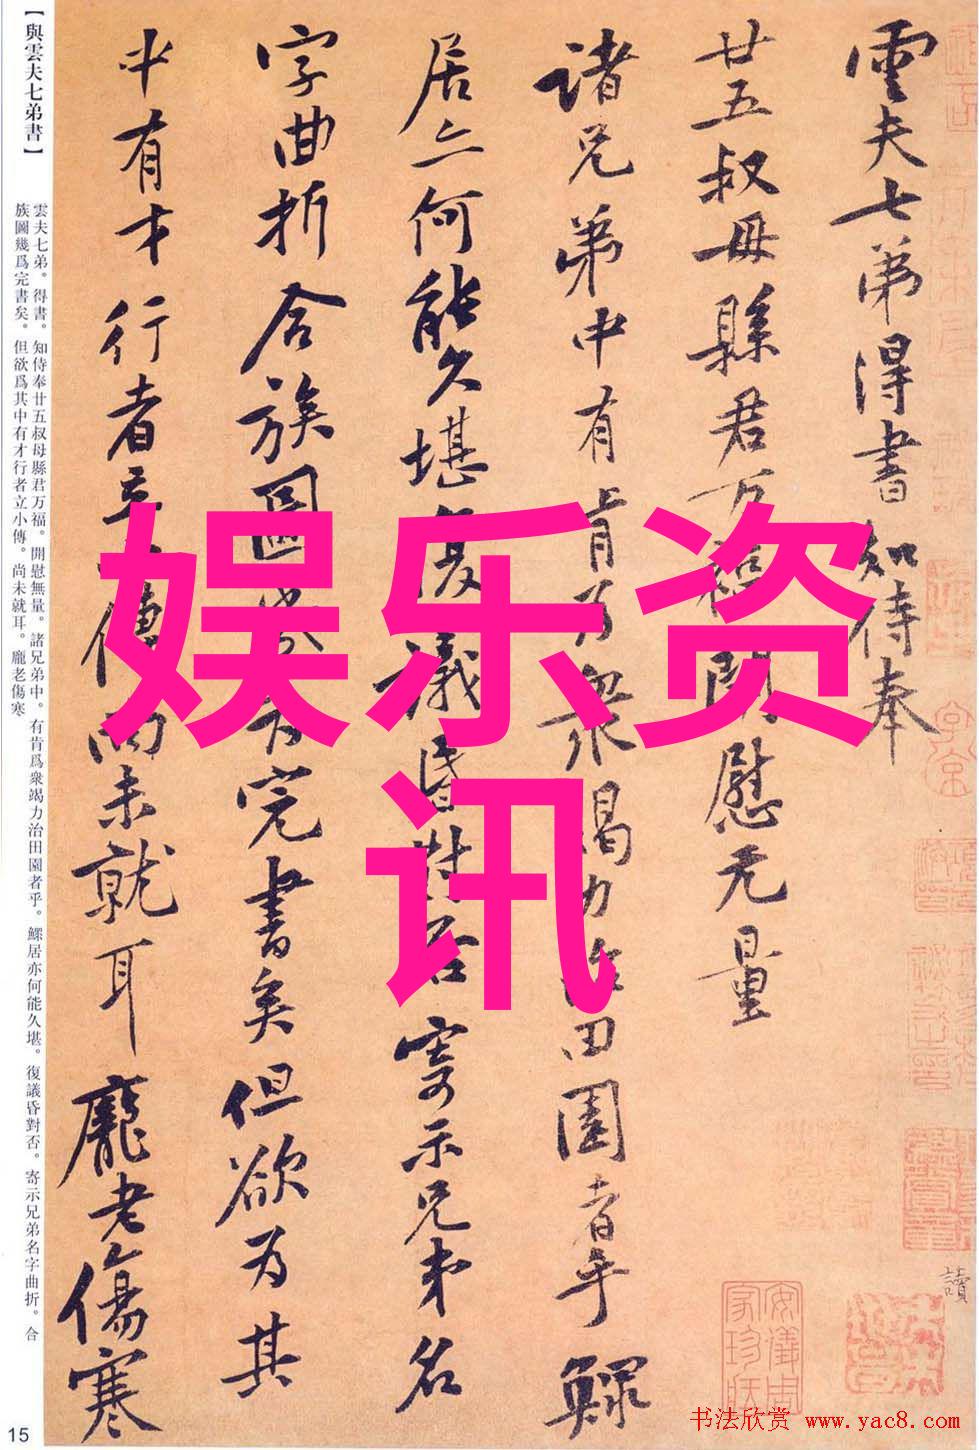 【與雲夫七弟書】
雲夫七弟。得書。知侍奉廿五叔母縣君万福。開慰無量。諸兄弟中。有肯爲衆竭力治田園者乎。鰥居亦何能久堪。復議昏對否。寄示兄弟名字曲折。合
族圖幾爲完書矣。但欲爲其中有才行者立小傳。尚未就耳。龐老傷寒
15
雲夫七弟得書知侍奉
廿五叔母縣君万福開慰无量
諸兄弟中有肯为衆竭力治田園者乎鰥
居亦何能久堪復議昏對否寄示兄弟名
字曲折合族圖幾为完書矣但欲为其
中有才行者立小傳尚未就耳龐老傷寒
娱乐资
讯
讀
安儀周
家珍藏
书法欣赏 www.yac8.com